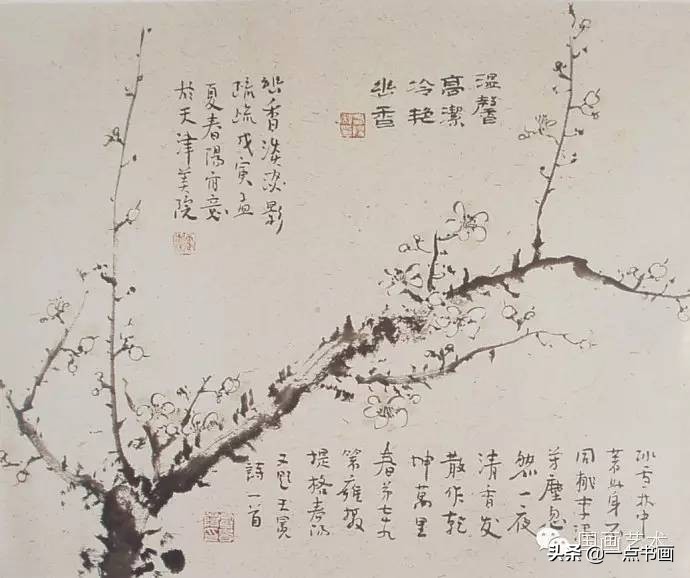 温馨
高潔
冷艳
幽香
幽香淡淡影
疏疏戊寅孟
夏春陽
於天津美院
冰雪林中
著此身不
同桃李混
芳塵忽
然一夜
清香发
散作乾
坤萬里
春
雍摄
提格春阳
又题王冕
詩一首
国画艺术
头条@一点书画